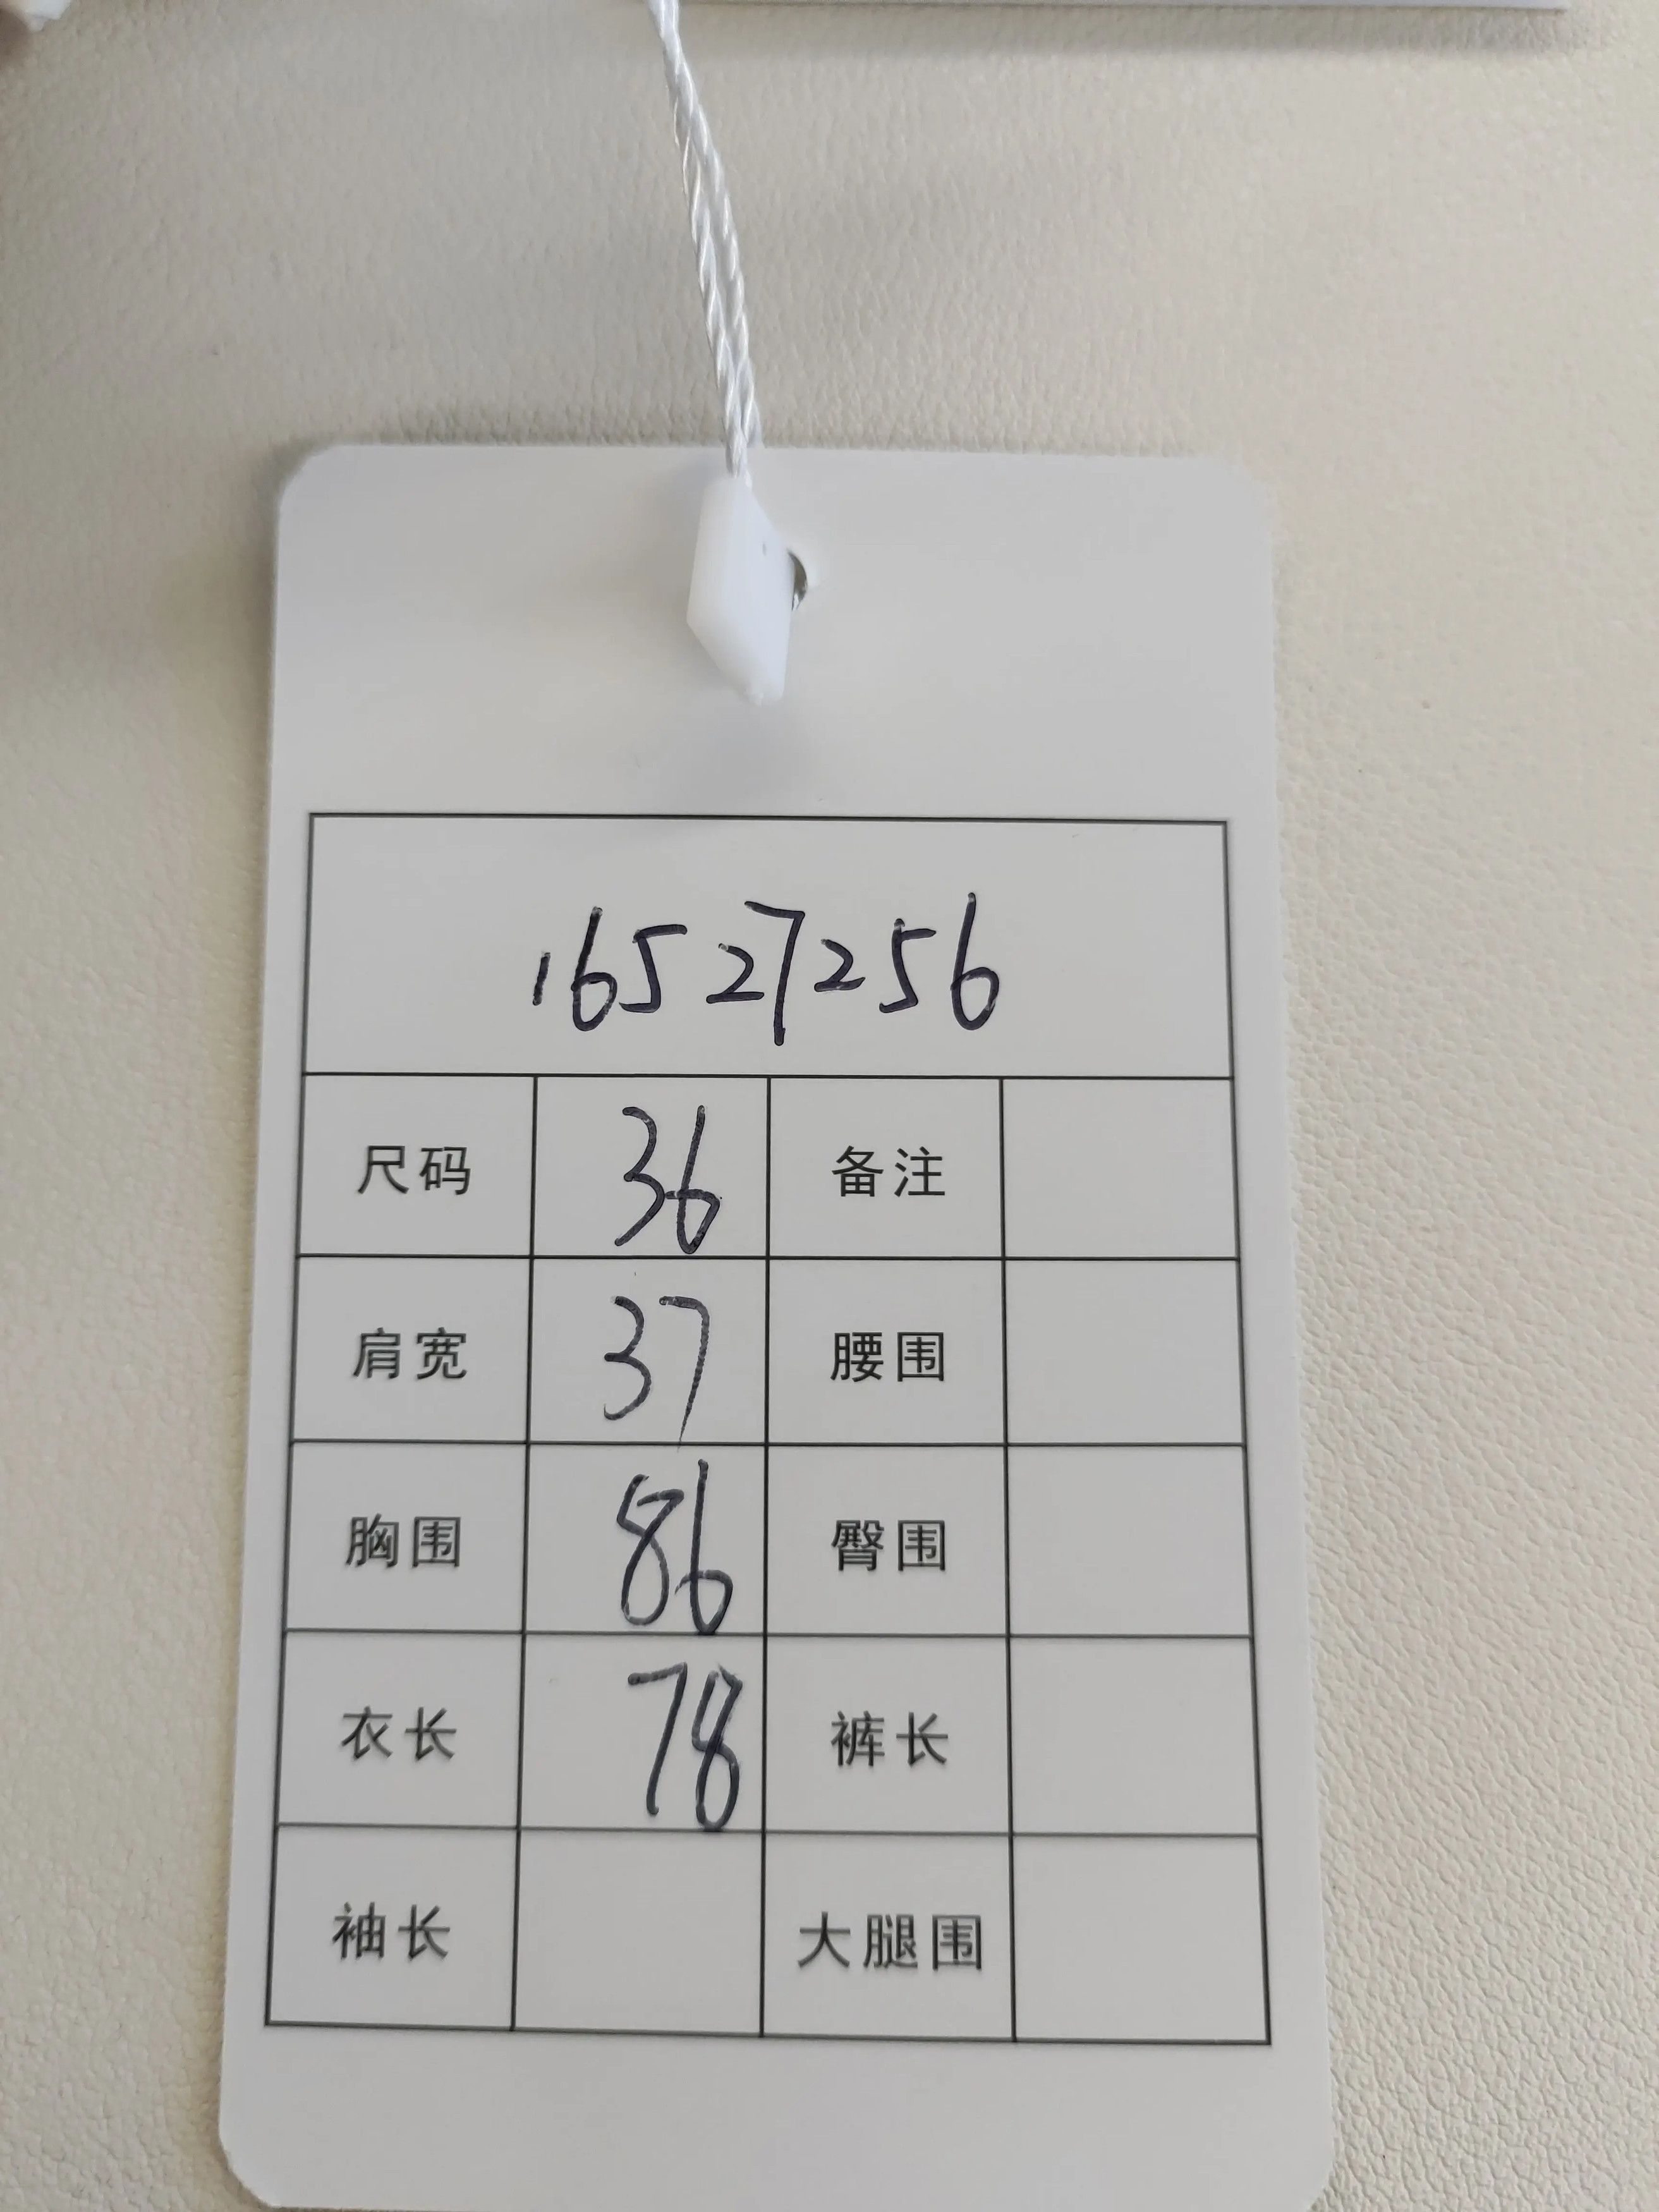 16527256
尺码 36 备注
肩宽 37 腰围
胸围 86 臀围
衣长 78 裤长
袖长 大腿围